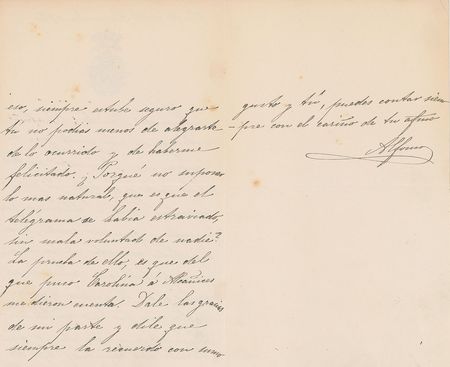 eso, siempre estube seguro que
tu no podias menos de alegrarte
de lo ocurrido y de haberme
felicitado. ¿Porque no suponer
lo mas natural, que es que el
telégrama se habia estraviado,
sin mala voluntad de nadie?
La prueba de ello, es que del
que puso Carolina á Alcañices
me dieron cuenta. Dale las gracias
de mi parte y dile que
siempre la recuerdo con sumo
gusto y tú, puedes contar siem-
pre con el cariño de tu afmo
Alfonso